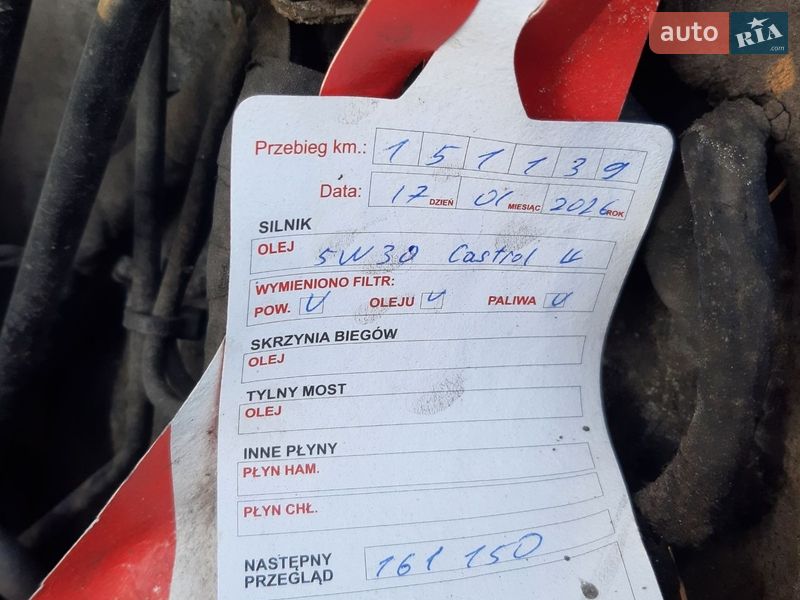 auto RIA.com
Przebieg km.: 151139
Data: 17 DZIEŃ 01 MIESIĄC 2026 ROK
SILNIK
OLEJ 5W30 Castrol
WYMIENIONO FILTR:
POW. OLEJU PALIWA
SKRZYNIA BIEGÓW
OLEJ
TYLNY MOST
OLEJ
INNE PŁYNY
PŁYN HAM.
PŁYN CHŁ.
NASTĘPNY
PRZEGLĄD 161 150